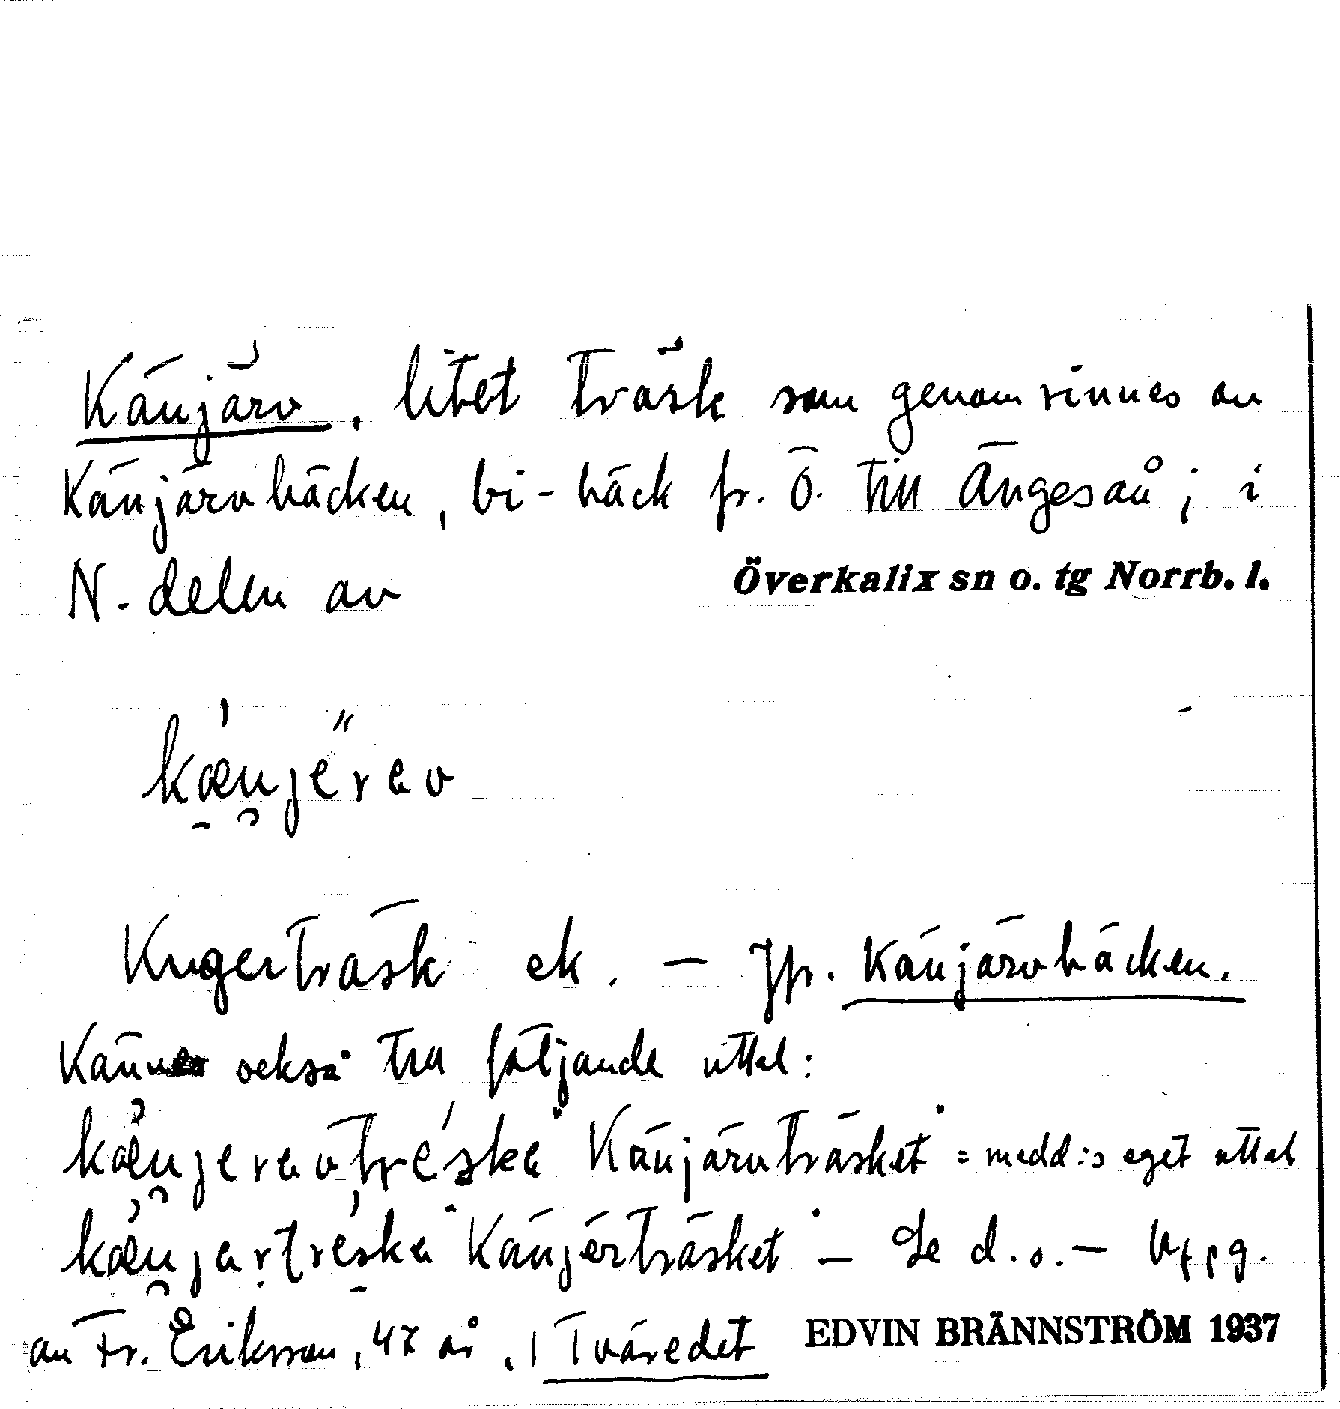 Känjärv, litet träsk som genomrinnes av
Känjärvbäcken, bi-bäck fr. Ö. till Ängesån; i
N. delen av Överkalix sn o. tg Norrb. l.
kænjerav
Kngerträsk ek. — Jfr. Känjärvbäcken.
Känner också till följande uttal:
kænjeravtreske Känjärvträsket = medd:s eget uttal
kænjartreske Känjerträsket — Se d.o. — Uppg.
av Fr. Eriksson, 47 år, i Tväredet EDVIN BRÄNNSTRÖM 1937